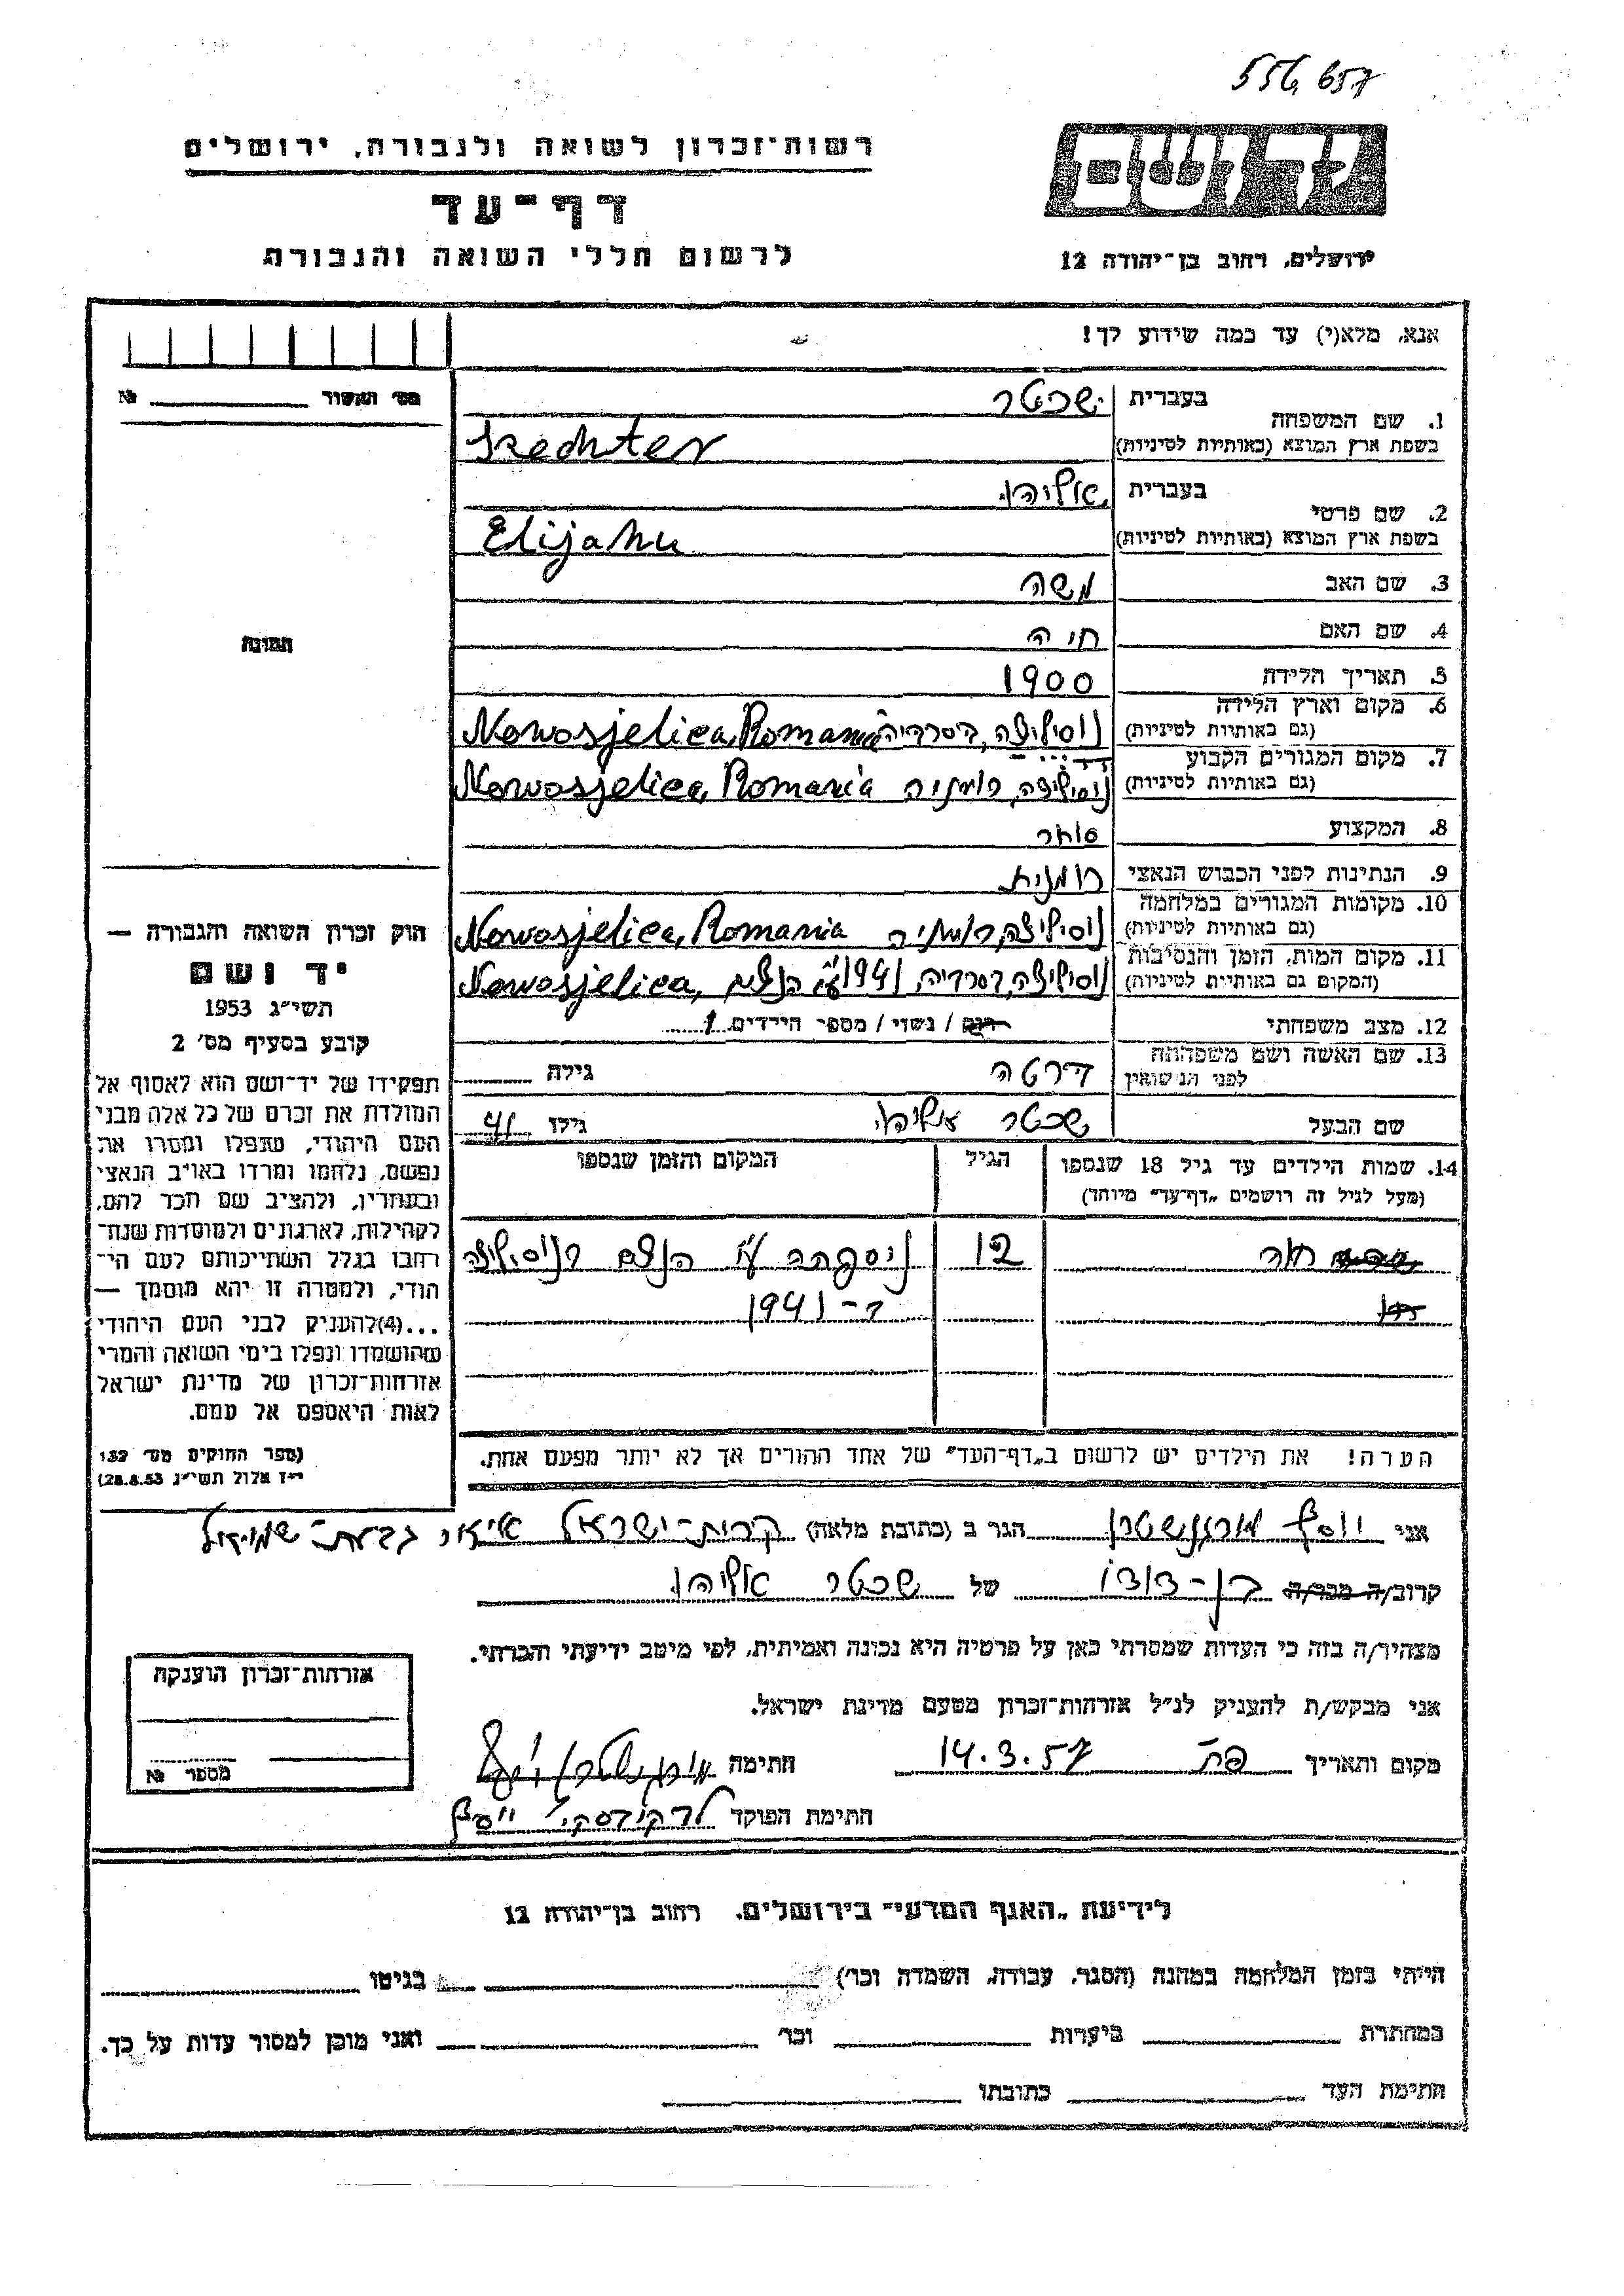 556,657
יד ושם
רשות־זכרון לשואה ולגבורה, ירושלים
דף־עד
לרשום חללי השואה והגבורה
ירושלים, רחוב בן־יהודה 12
אנא, מלא(י) עד כמה שידוע לך!
מס׳ האשור №
1. שם המשפחה בעברית שכטר
בשפת ארץ המוצא (באותיות לטיניות) Szechter
2. שם פרטי בעברית אליהו
בשפת ארץ המוצא (באותיות לטיניות) Elijahu
3. שם האב משה
4. שם האם חיה
תמונה
5. תאריך הלידה 1900
6. מקום וארץ הלידה (גם באותיות לטיניות) נוסיליצה, בסרביה Nowosjelica, Romania
7. מקום המגורים הקבוע (גם באותיות לטיניות) נוסיליצה, רומניה Nowosjelica, Romania
8. המקצוע סוחר
9. הנתינות לפני הכבוש הנאצי רומנית
10. מקומות המגורים במלחמה (גם באותיות לטיניות) נוסיליצה, רומניה Nowosjelica, Romania
11. מקום המות, הזמן והנסיבות (המקום גם באותיות לטיניות) נוסיליצה, בסרביה, 1941 ע״י הנאצים Nowosjelica,
12. מצב משפחתי רווק / נשוי / מספר הילדים 1
13. שם האשה ושם משפחתה לפני הנישואין ברטה גילה
שם הבעל שכטר אליהו גילו 41
14. שמות הילדים עד גיל 18 שנספו
(מעל לגיל זה רושמים „דף־עד״ מיוחד)
הגיל
המקום והזמן שנספו
12 ניספתה ע״י הנאצים בנוסיליצה
ב־1941
הערה! את הילדים יש לרשום ב„דף־העד״ של אחד ההורים אך לא יותר מפעם אחת.
חוק זכרון השואה והגבורה —
יד ושם
תשי״ג 1953
קובע בסעיף מס׳ 2
תפקידו של יד־ושם הוא לאסוף אל
המולדת את זכרם של כל אלה מבני
העם היהודי, שנפלו ומסרו את
נפשם, נלחמו ומרדו באויב הנאצי
ובעוזריו, ולהציב שם וזכר להם,
לקהילות, לארגונים ולמוסדות שנח־
רבו בגלל השתייכותם לעם הי־
הודי, ולמטרה זו יהא מוסמך —
...(4)להעניק לבני העם היהודי
שהושמדו ונפלו בימי השואה והמרי
אזרחות־זכרון של מדינת ישראל
לאות היאספם אל עמם.
(ספר החוקים מס׳ 132
י״ז אלול תשי״ג 28.8.53)
אני יוסף מורגנשטרן הגר ב (כתובת מלאה) קרית־ישראל גבעת־שמואל
קרוב/ה מכר/ה בן־דודו של שכטר אליהו
מצהיר/ה בזה כי העדות שמסרתי כאן על פרטיה היא נכונה ואמיתית, לפי מיטב ידיעתי והכרתי.
אני מבקש/ת להעניק לנ״ל אזרחות־זכרון מטעם מדינת ישראל.
מקום ותאריך פת 14.3.57 חתימה
חתימת הפוקד
אזרחות־זכרון הוענקה
מספר №
לידיעת „האגף המדעי״ בירושלים, רחוב בן־יהודה 12
הייתי בזמן המלחמה במחנה (הסגר, עבודה, השמדה וכו׳) בגיטו
במחתרת ביערות וכו׳ ואני מוכן למסור עדות על כך.
חתימת העד כתובתו